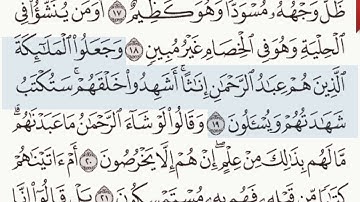 ظَلَّ وَجْهُهُۥ مُسْوَدًّا وَهُوَ كَظِيمٌ ١٧ أَوَمَن يُنَشَّؤُا۟ فِى
ٱلْحِلْيَةِ وَهُوَ فِى ٱلْخِصَامِ غَيْرُ مُبِينٍ ١٨ وَجَعَلُوا۟ ٱلْمَلَٰٓئِكَةَ
ٱلَّذِينَ هُمْ عِبَٰدُ ٱلرَّحْمَٰنِ إِنَٰثًا ۚ أَشَهِدُوا۟ خَلْقَهُمْ ۚ سَتُكْتَبُ
شَهَٰدَتُهُمْ وَيُسْـَٔلُونَ ١٩ وَقَالُوا۟ لَوْ شَآءَ ٱلرَّحْمَٰنُ مَا عَبَدْنَٰهُم ۗ
مَّا لَهُم بِذَٰلِكَ مِنْ عِلْمٍ ۖ إِنْ هُمْ إِلَّا يَخْرُصُونَ ٢٠ أَمْ ءَاتَيْنَٰهُمْ
كِتَٰبًا مِّن قَبْلِهِۦ فَهُم بِهِۦ مُسْتَمْسِكُونَ ٢١ بَلْ قَالُوٓا۟ إِنَّا